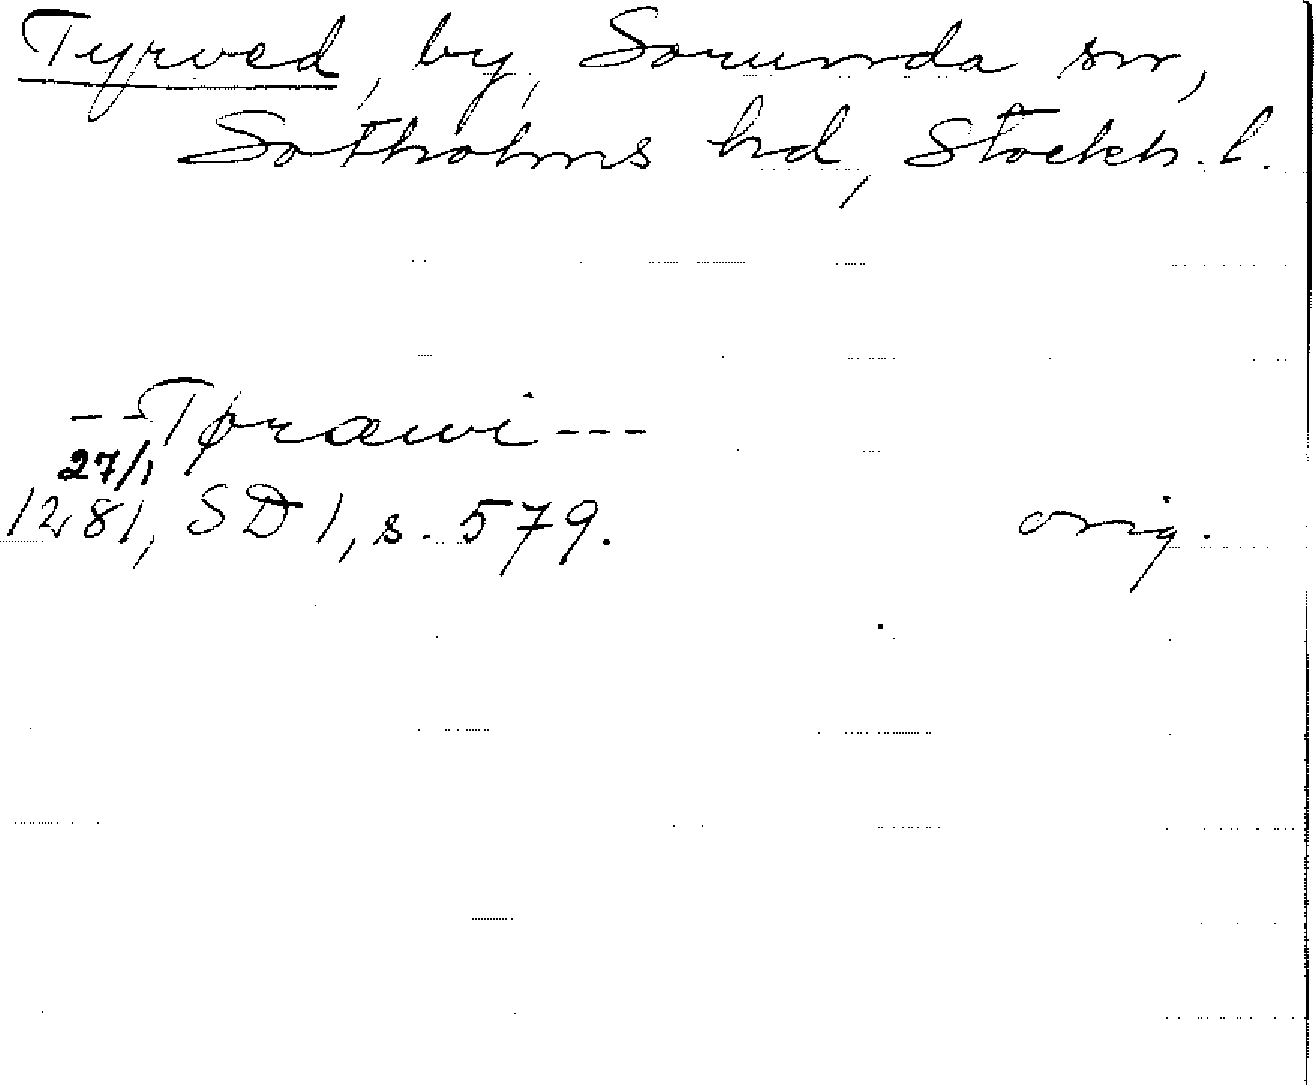 Tyrved, by, Sorunda sn,
Sotholms hd, Stockh. l.
- - Tøræwi - - -
27/1
1281, SD 1, s. 579. orig.